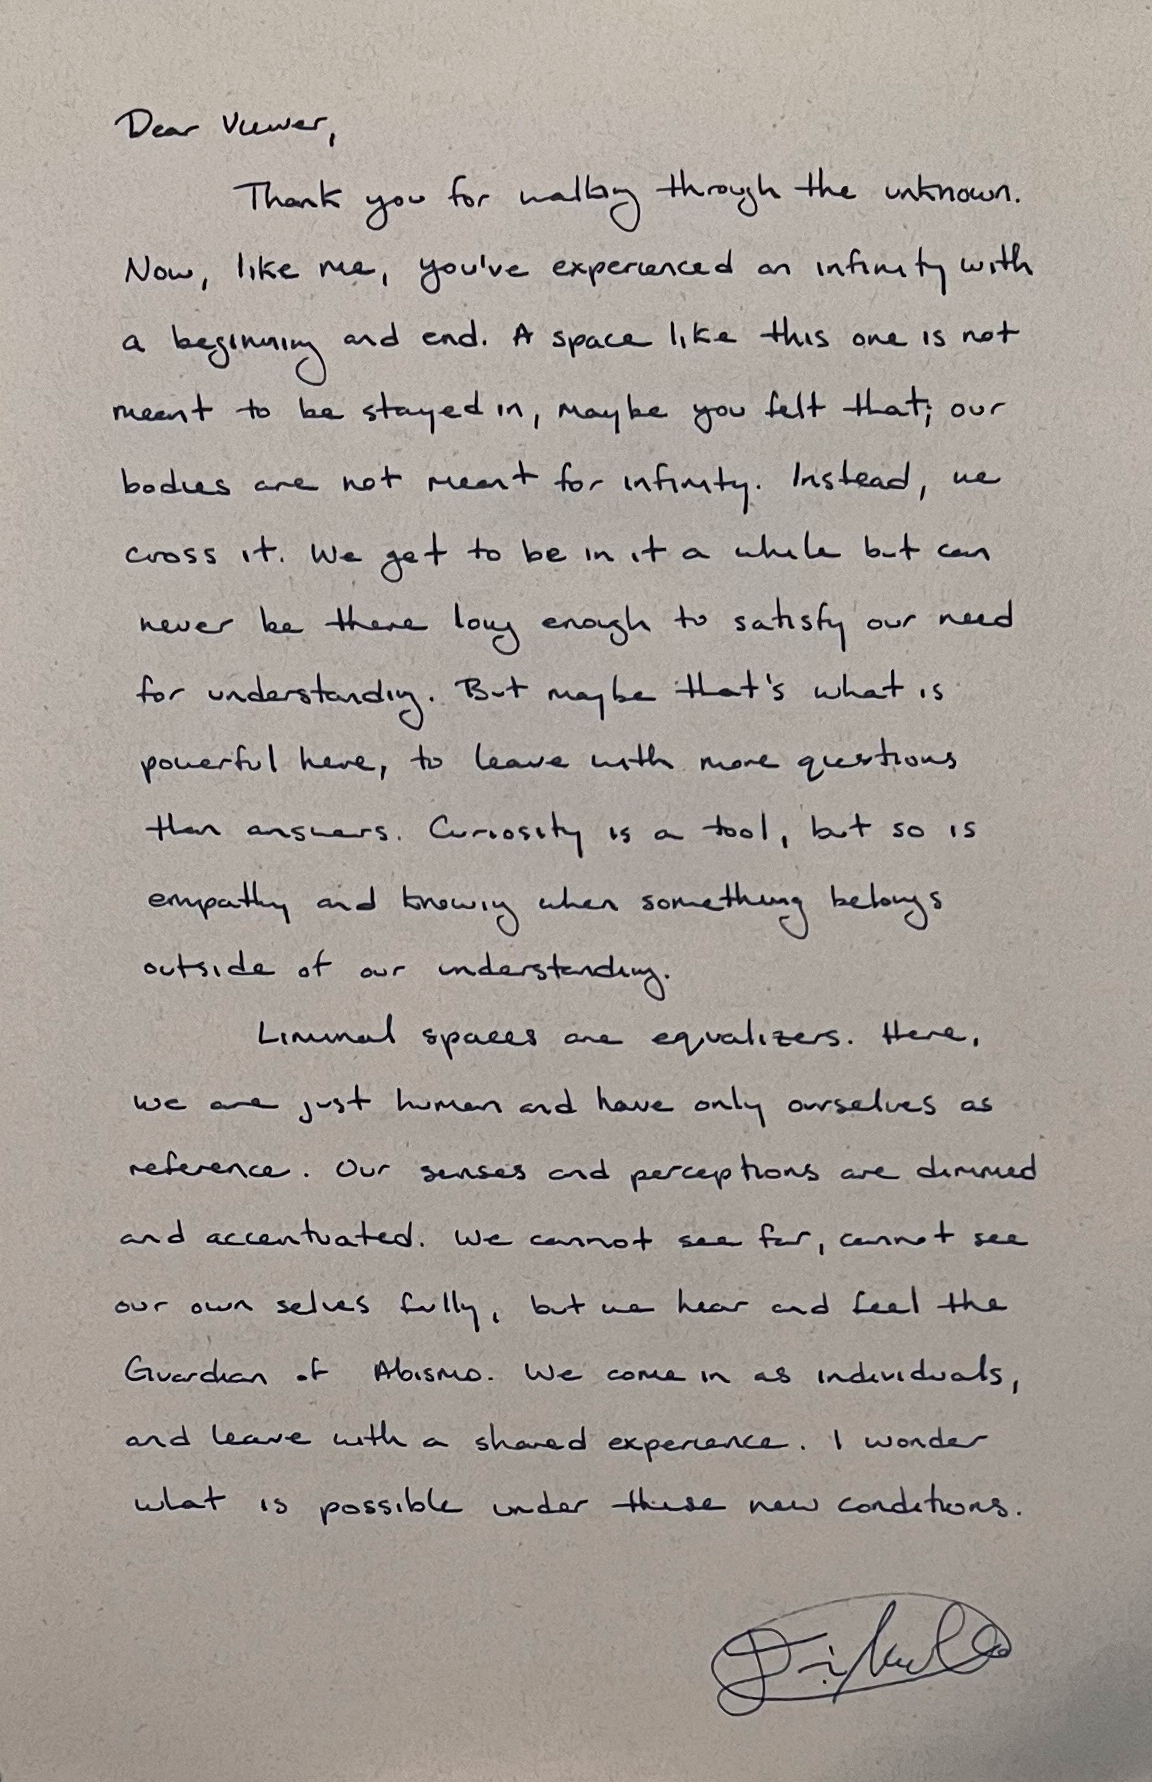 Dear Viewer,
Thank you for walking through the unknown.
Now, like me, you've experienced an infinity with
a beginning and end. A space like this one is not
meant to be stayed in, maybe you felt that; our
bodies are not meant for infinity. Instead, we
cross it. We get to be in it a while but can
never be there long enough to satisfy our need
for understanding. But maybe that's what is
powerful here, to leave with more questions
than answers. Curiosity is a tool, but so is
empathy and knowing when something belongs
outside of our understanding.
Liminal spaces are equalizers. Here,
we are just human and have only ourselves as
reference. Our senses and perceptions are dimmed
and accentuated. We cannot see far, cannot see
our own selves fully, but we hear and feel the
Guardian of Abismo. We come in as individuals,
and leave with a shared experience. I wonder
what is possible under these new conditions.